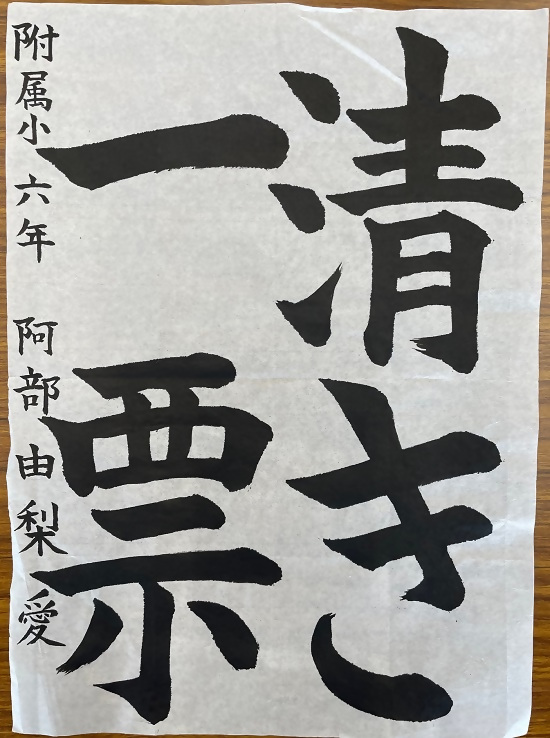 清き
一票
附属小 六年 阿部 由梨愛